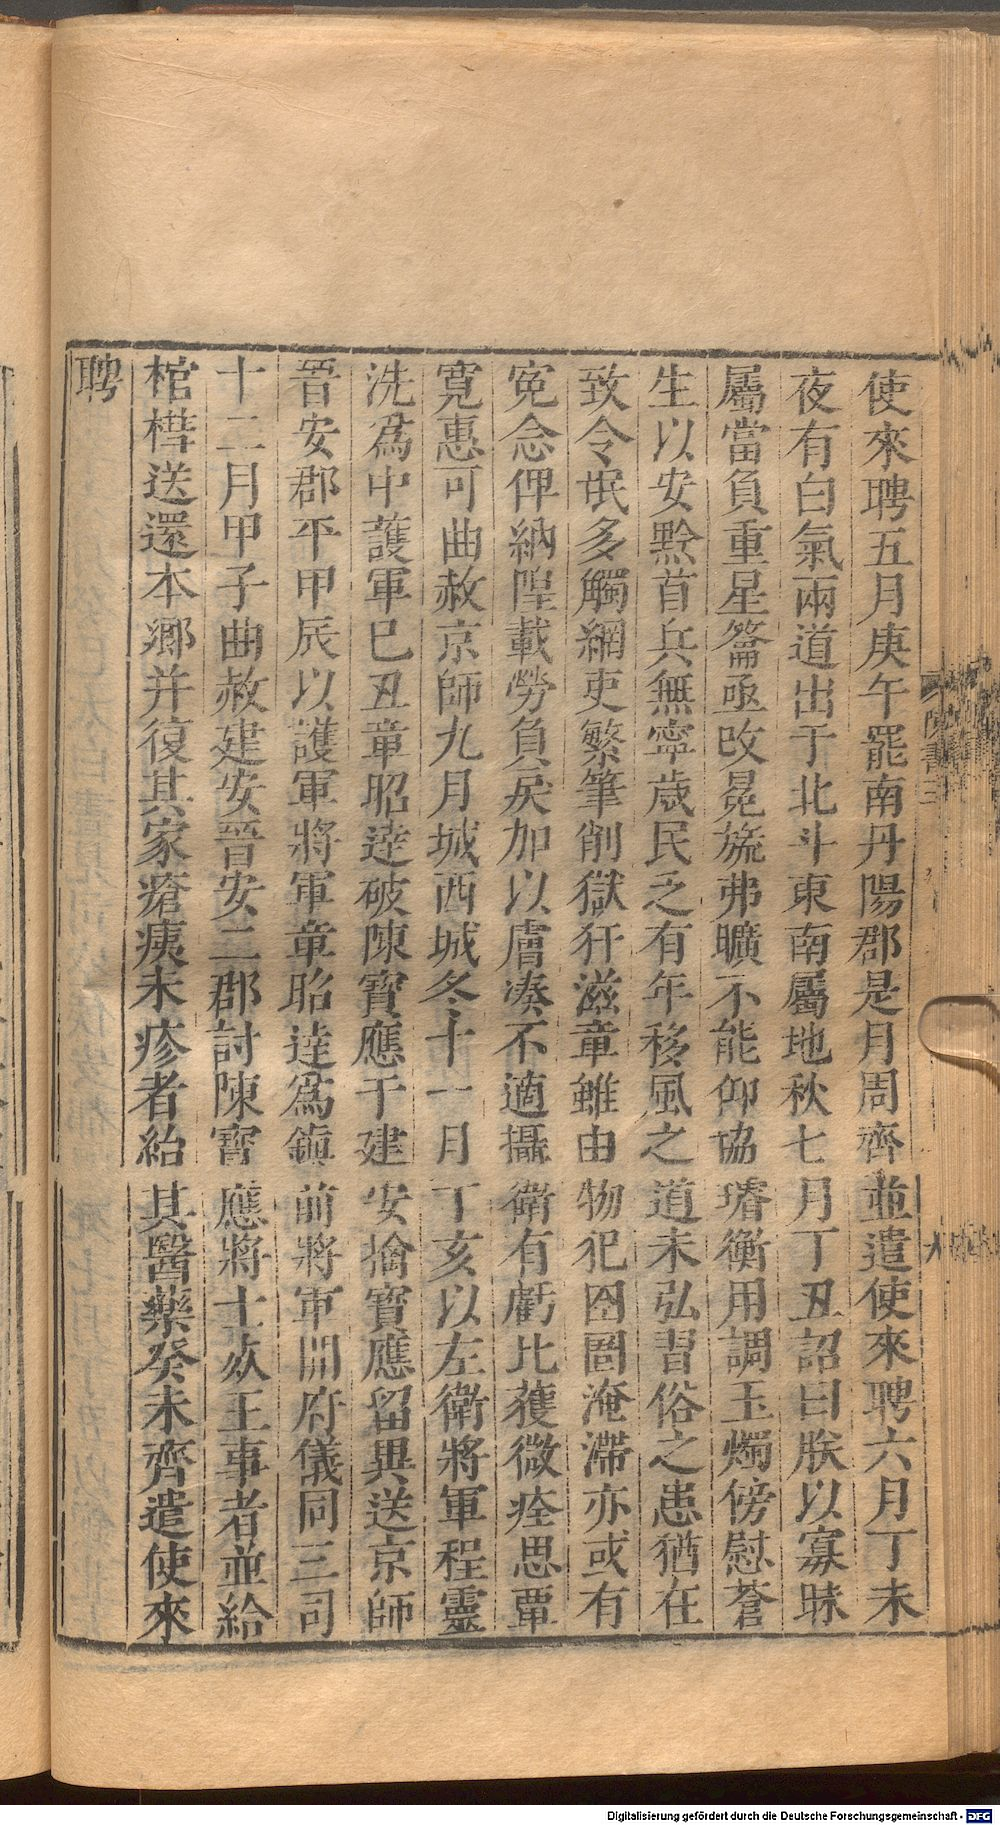 使來聘五月庚午罷南丹陽郡是月周齊並遣使來聘六月丁未
夜有白氣兩道出于北斗東南屬地秋七月丁丑詔曰朕以寡昧
屬當負重星籥亟改冕旒弗曠不能仰協璿衡用調玉燭傍慰蒼
生以安黔首兵無寧歲民乏有年移風之道未弘習俗之患猶在
致令氓多觸網吏繁筆削獄犴滋章雖由物犯囹圄淹滯亦或有
寃念俾納隍載勞負扆加以膚湊不適攝衛有虧比獲微痊思覃
寛惠可曲赦京師九月城西城冬十一月丁亥以左衛將軍程靈
洗爲中護軍已丑章昭達破陳寶應于建安擒寶應留異送京師
晉安郡平甲辰以護軍將軍章昭達爲鎭前將軍開府儀同三司
十二月甲子曲赦建安晉安二郡討陳寶應將士死王事者並給
棺槥送還本鄉并復其家瘡痍未疹者給其醫藥癸未齊遣使來
聘
陳書三
Digitalisierung gefördert durch die Deutsche Forschungsgemeinschaft - DFG